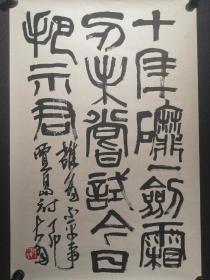 十年磨一劍霜
刃未嘗試今日
把示君
誰為不平事
賈島詩丁卯